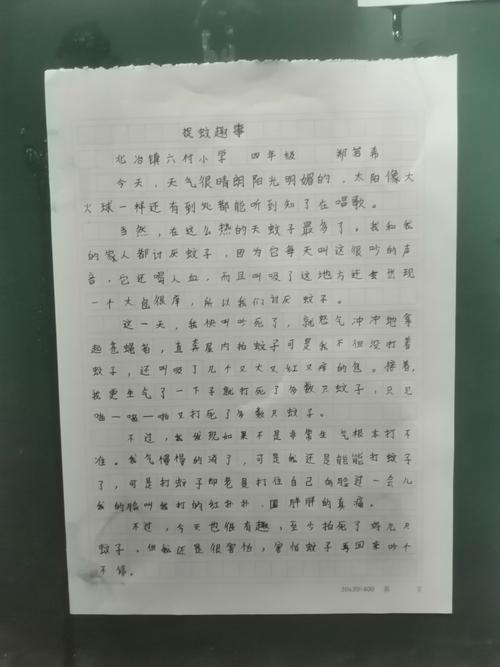 捉蚊趣事
北冶镇六村小学 四年级 郑茗希
今天，天气很晴朗阳光明媚的，太阳像大
火球一样还有到处都能听到知了在唱歌。
当然，在这么热的天蚊子最多了，我和我
的家人都讨厌蚊子，因为它每天叫这很吵的声
音，它还喝人血，而且叫吸了这地方还会出现
一个大包很痒，所以我们讨厌蚊子。
这一天，我快叫吵死了，就怒气冲冲地拿
起苍蝇拍，直奔屋内拍蚊子可是我不但没打着
蚊子，还叫吸了几个又大又红又疼的包。接着，
我更生气了一下子就打死了多数只蚊子，只见
啪一啪一啪又打死了多数只蚊子。
不过，我发现如果不是非常生气根本打不
准。我气慢慢的消了，可是我还是能能打蚊子
了，可是打蚊子却老是打住自己的脸过一会儿
我的脸叫我打的红扑扑，圆胖胖的真痛。
不过，今天也很有趣，至少拍死了好几只
蚊子，但我还是很害怕，害怕蚊子再回来吵个
不停。
20×20=400 第 页